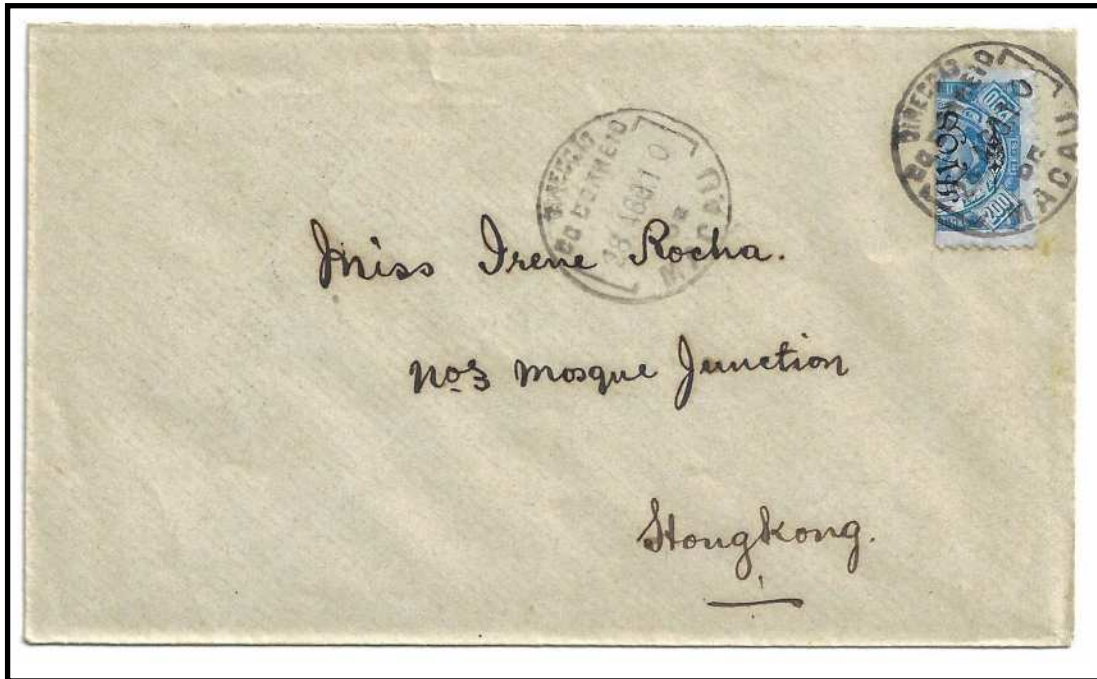 DIRECÇÃO
DO CORREIO
DE
MACAU
DIRECÇÃO
DO CORREIO
DE
MACAU
200
Miss Irene Rocha.
No 3 Mosque Junction
Hongkong.